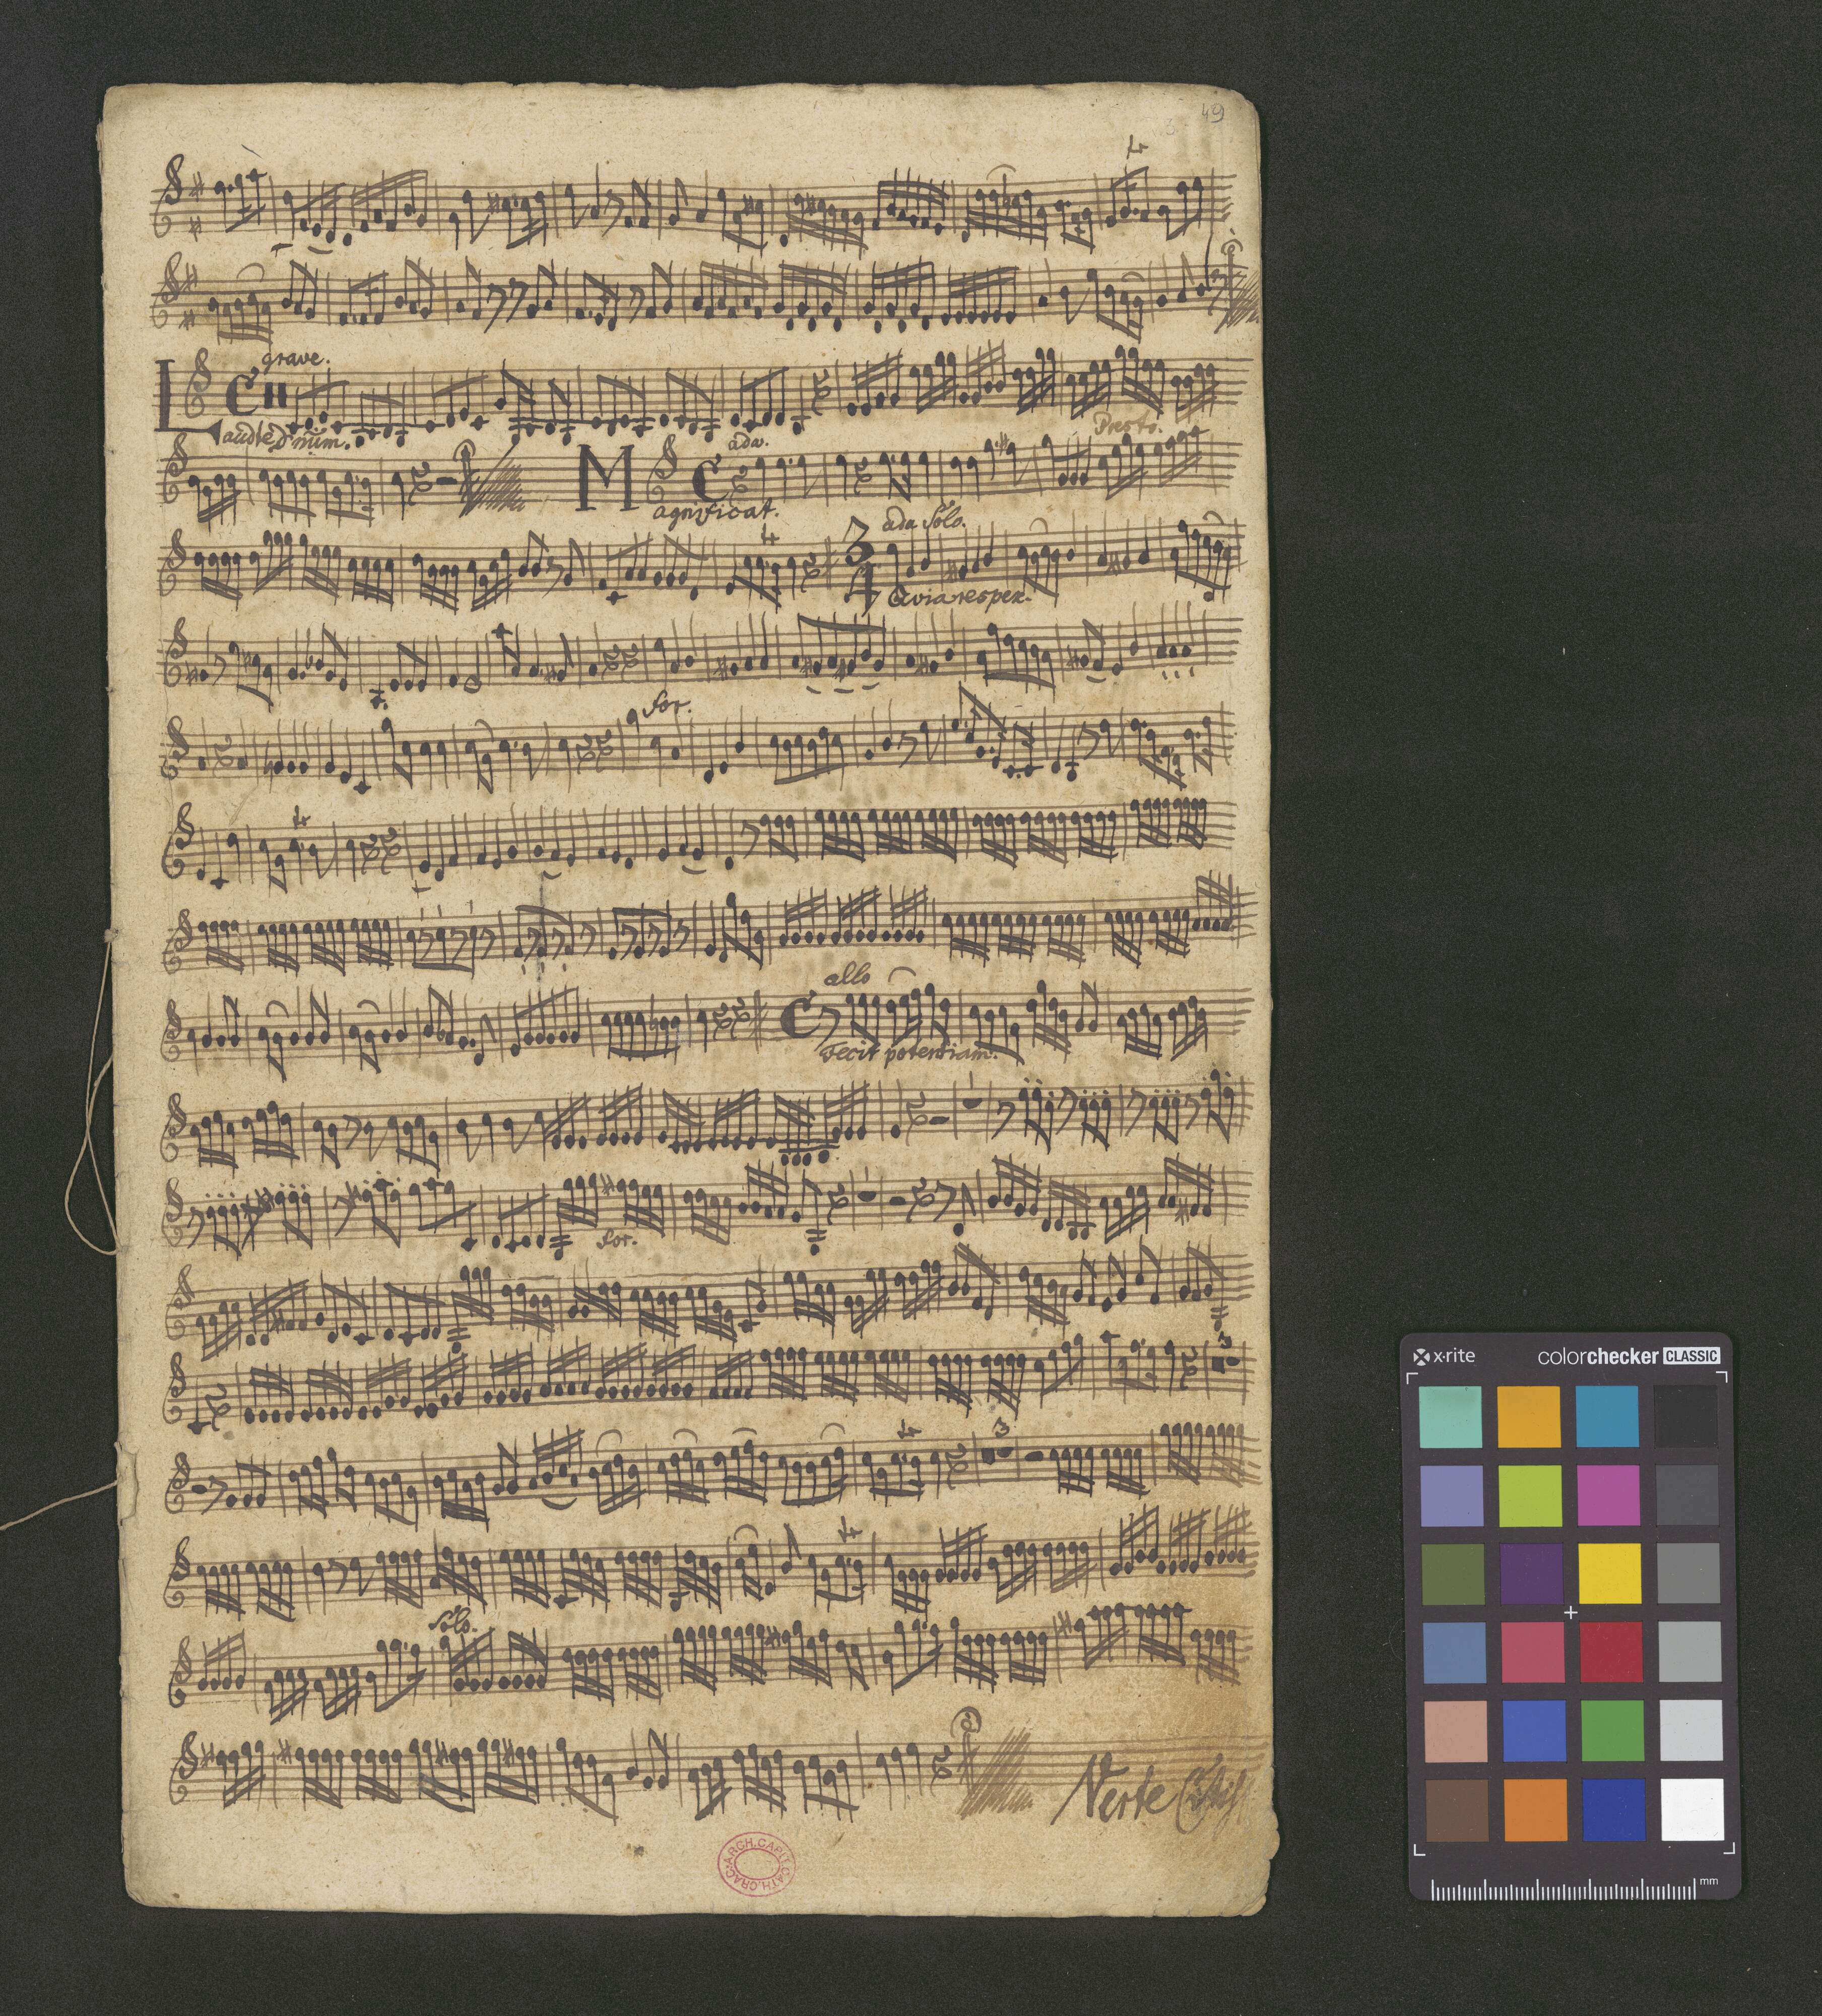 49
tr
grave.
Laudte Dñum.
Presto.
ada.
Magnificat.
tr
3
4
ada Solo.
Qvia respex.
for.
tr
allo
Fecit potentiam.
for.
3
tr
3
tr
Solo.
Verte
ARCH.CAPIT.CATH.CRAC.
x-rite
colorchecker CLASSIC
mm